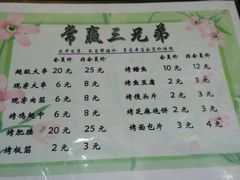 常赢三兄弟
会员价 非会员价 会员价 非会员价
超级大串 20元 25元 烤鲫鱼 10元 12元
现穿大串 6元 8元 烤鱼豆腐 2元 3元
现穿肉筋 6元 8元 烤馒头片 2元 3元
烤鸡翅中 6元 8元 烤芝麻烧饼 2元 3元
烤肥腰 20元 25元 烤面包片 3元 4元
烤板筋 2元 3元